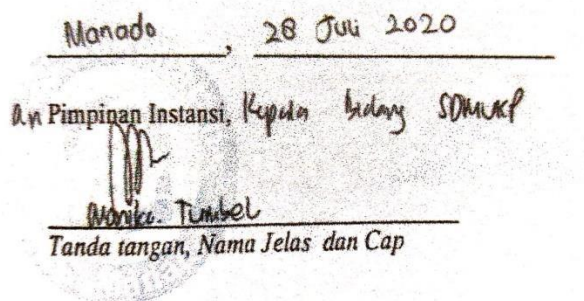 Manado, 28 Juli 2020
an Pimpinan Instansi, Kepala bidang SDMUKP
Tumbel
Tanda tangan, Nama Jelas dan Cap